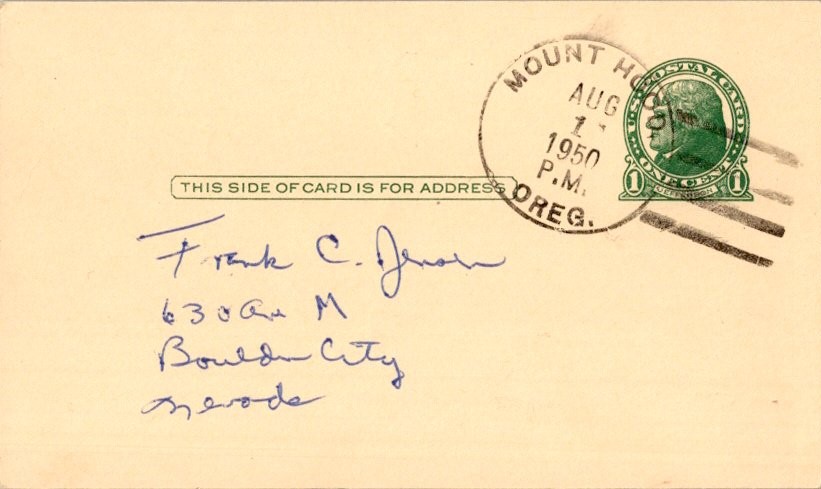 MOUNT HOOD
AUG
1
1950
P.M.
OREG.
U.S. POSTAL CARD
ONE CENT
1 JEFFERSON 1
THIS SIDE OF CARD IS FOR ADDRESS
Frank C. Jensen
630 Ave M
Boulder City
Nevada